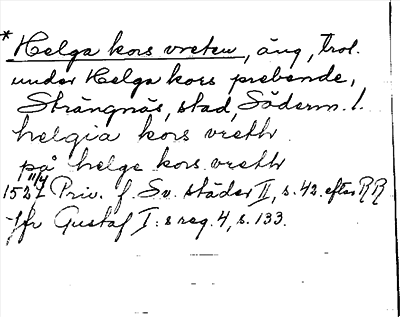 * Helga kors vreten, äng, trol.
under Helga kors prebende,
Strängnäs, stad, Söderm. l.
helgia kors vreth
på helge kors vreth
11/4
1527 Priv. f. Sv. städer II, s. 42. efter RR
Jfr Gustaf I:s reg. 4, s. 133.